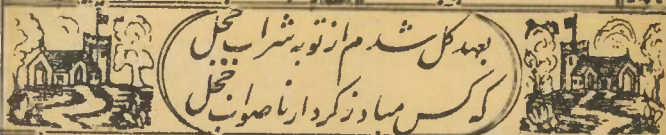 بعهد گل شدم از توبه شراب خجل
که کس مباد ز کردار ناصواب خجل